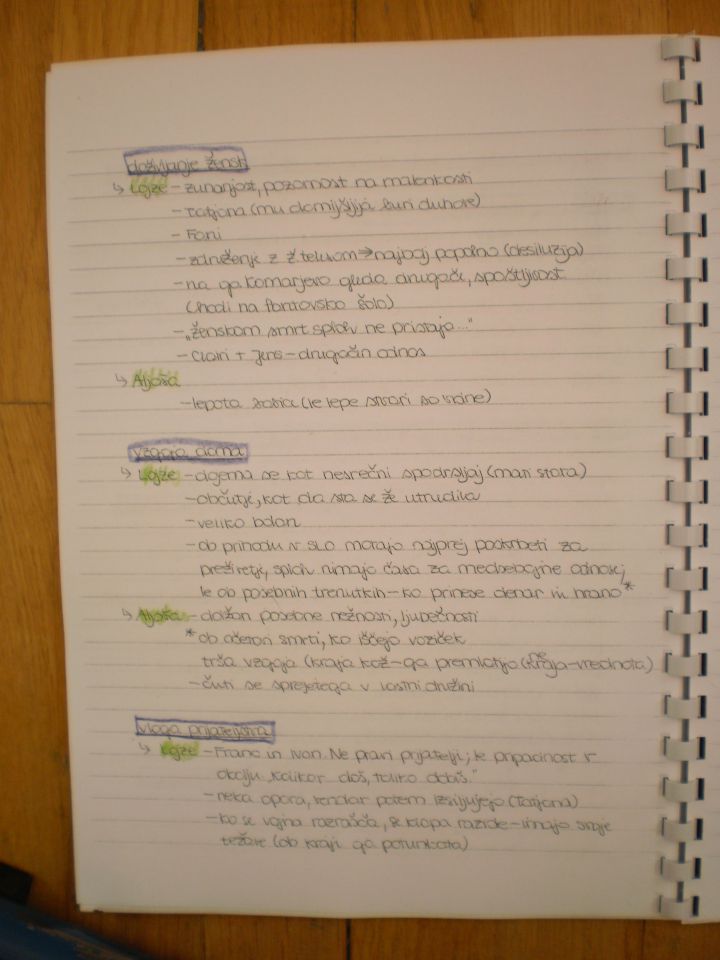 doživljanje žensk
↳ Lojze - zunanjost, pozornost na malenkosti
- Tatjana (mu domišljijo buri duhove)
- Fani
- združenje z ž. telesom → najbolj popolno (desiluzija)
- na ga. Komarjevo gleda drugače, spoštljivost
(hodi na plantovsko šolo)
- „ženskam smrt sploh ne pristaja..."
- Clairi + Jens - drugačen odnos
↳ Aljoša
- lepota sveta (le lepe stvari so vredne)
vzgoja doma
↳ Lojze - dojema se kot nesrečni spodrsljaj (mati stara)
- občutje, kot da sta se že utrudila
- veliko bolan
- ob prihodu v SLO morajo najprej poskrbeti za
preživetje, sploh nimajo časa za medsebojne odnose,
le ob posebnih trenutkih - ko prinese denar in hrano*
↳ Aljoša - deležen posebne nežnosti, ljubečnosti
*ob očetovi smrti, ko iščejo voziček
trša vzgoja (kraja kož - ga premlatijo (ne kraja - vrednota)
- čuti se sprejetega v lastni družini
vloga prijateljstva
↳ Lojze - Franc in Ivan. Ne pravi prijatelji, le pripadnost v
obdobju „kolikor daš, toliko dobiš."
- neka opora, vendar potem izsiljujejo (Tatjana)
- ko se vojna razrašča, se klapa razide - imajo svoje
težave (ob kraji ga potunkata)